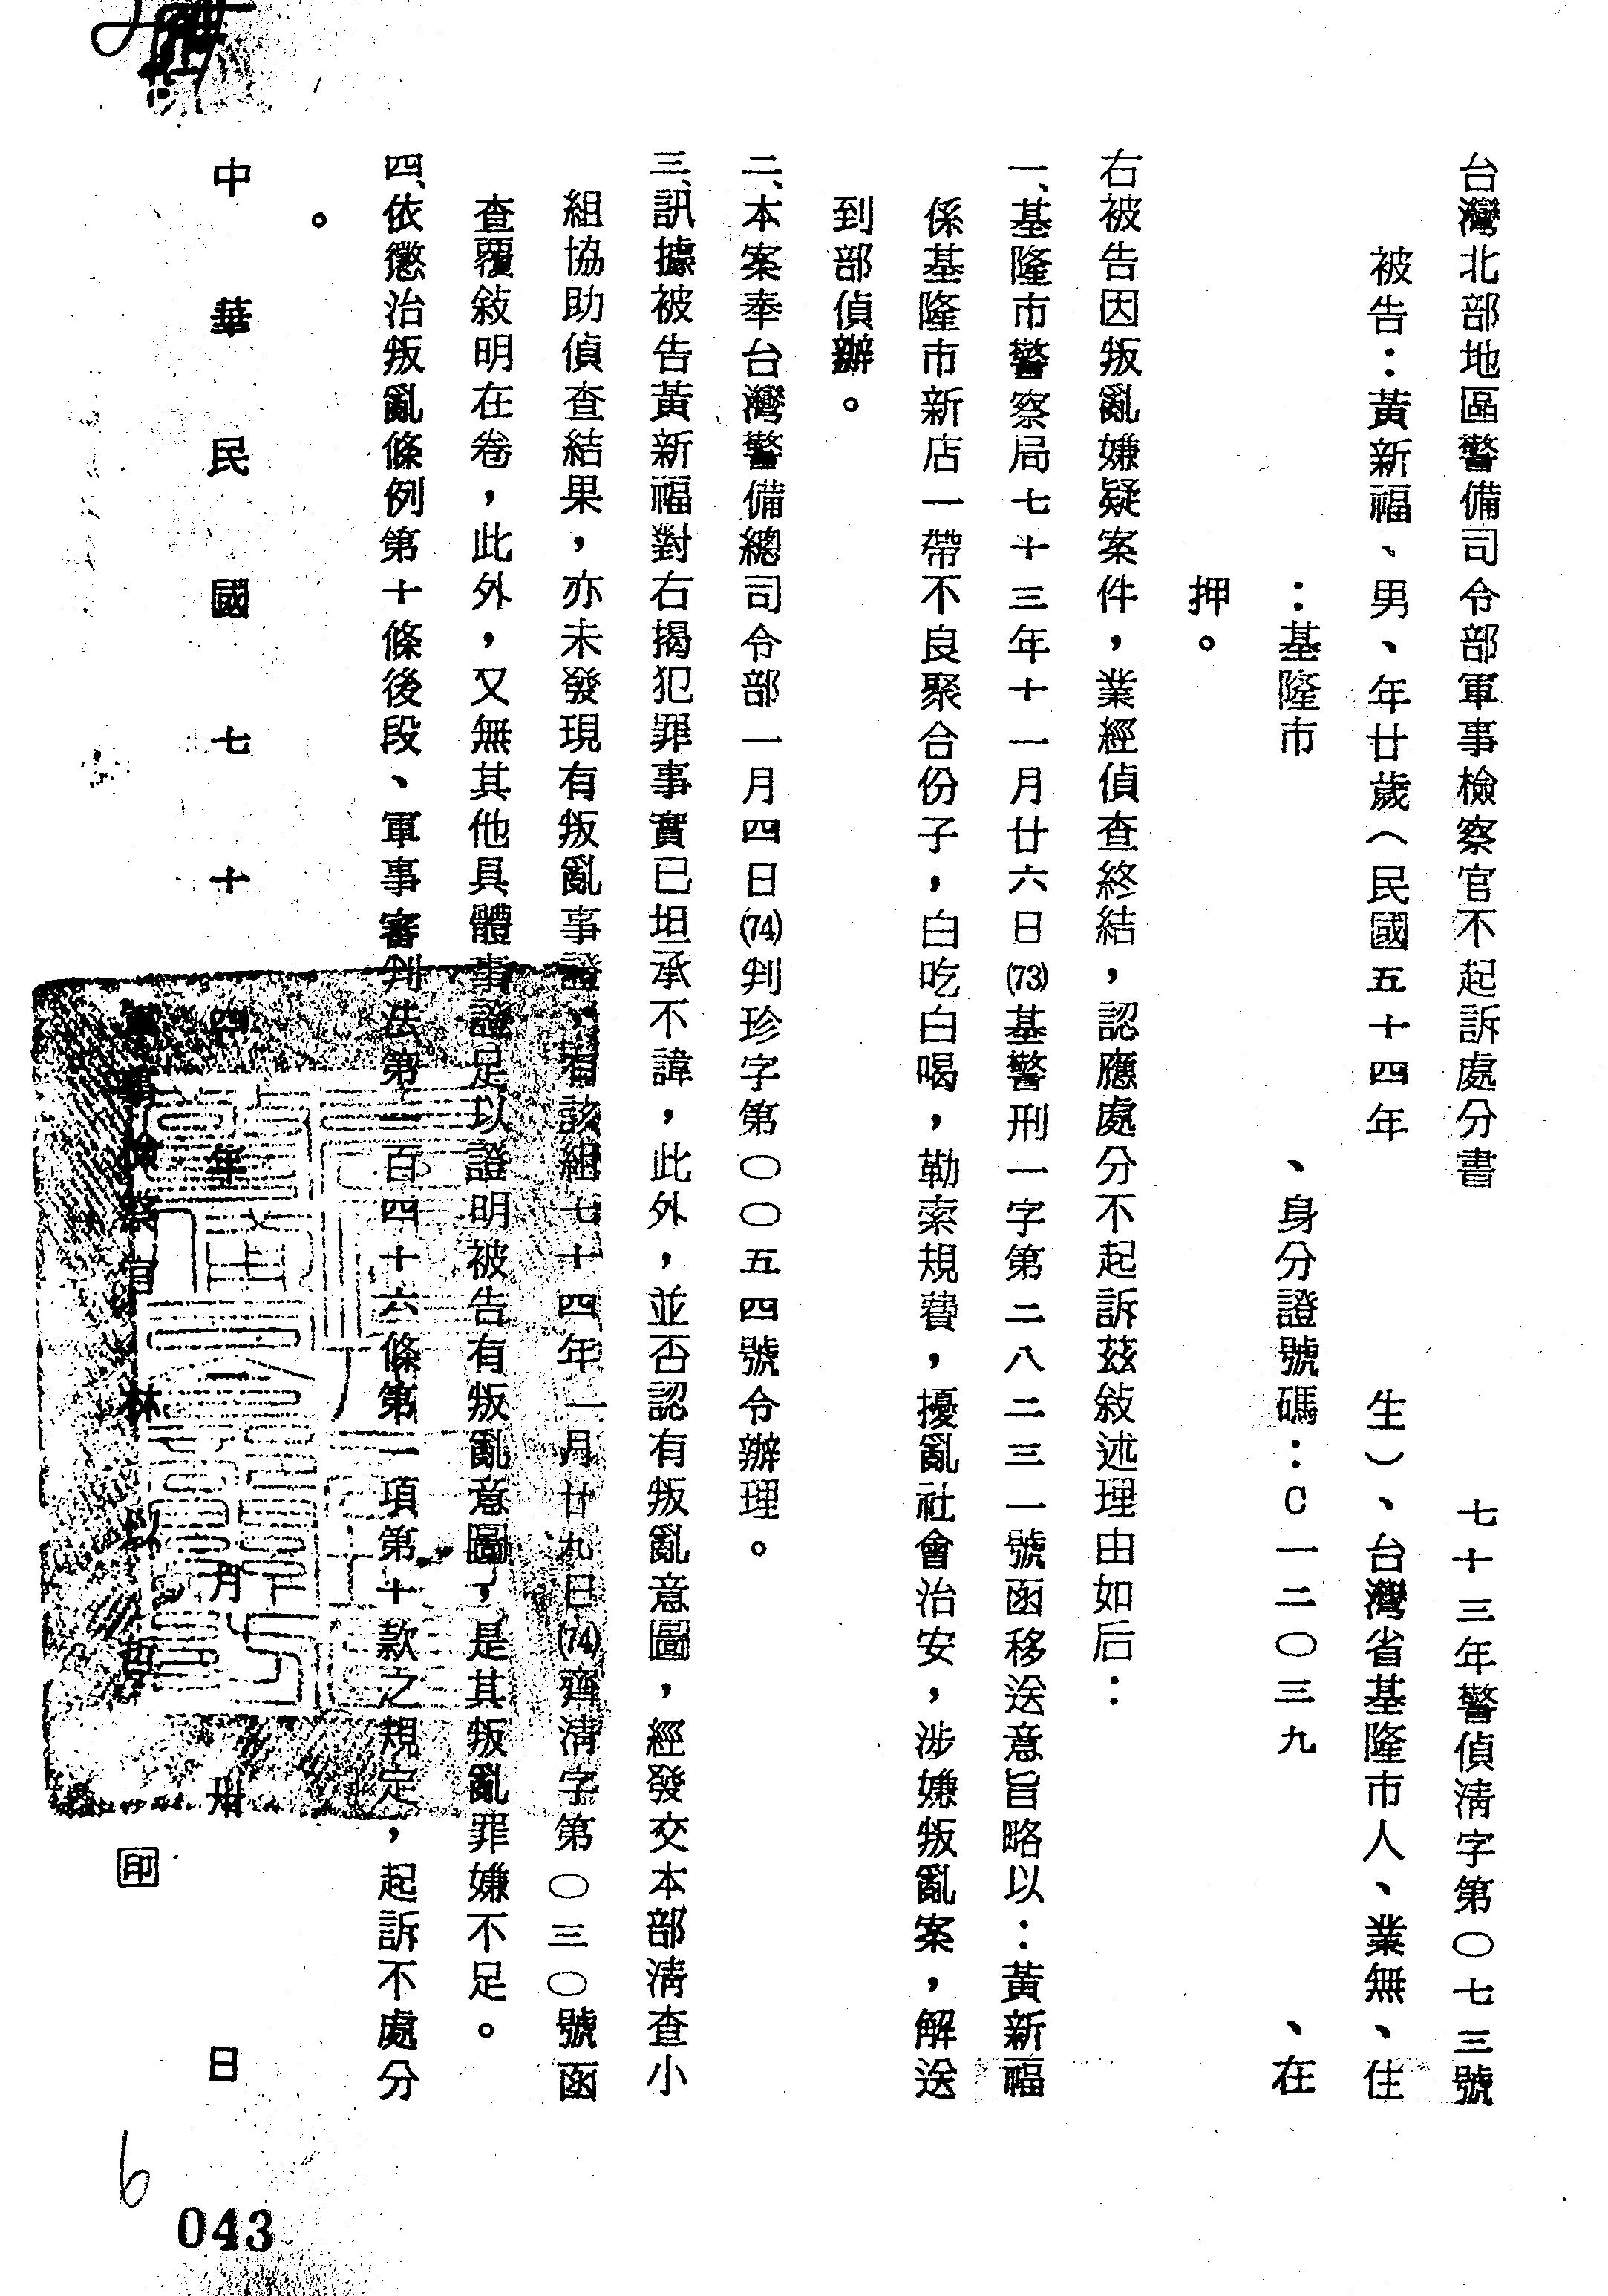 台灣北部地區警備司令部軍事檢察官不起訴處分書　七十三年警偵清字第〇七三號
被告：黃新福、男、年廿歲（民國五十四年　生）、台灣省基隆市人、業無、住
：基隆市　、身分證號碼：C一二〇三九　、在
押。
右被告因叛亂嫌疑案件，業經偵查終結，認應處分不起訴茲敍述理由如后：
一、基隆市警察局七十三年十一月廿六日(73)基警刑一字第二八二三一號函移送意旨略以：黃新福
係基隆市新店一帶不良聚合份子，白吃白喝，勒索規費，擾亂社會治安，涉嫌叛亂案，解送
到部偵辦。
二、本案奉台灣警備總司令部一月四日(74)判珍字第〇〇五四號令辦理。
三、訊據被告黃新福對右揭犯罪事實已坦承不諱，此外，並否認有叛亂意圖，經發交本部清查小
組協助偵查結果，亦未發現有叛亂事證，有該組七十四年一月廿九日(74)齊清字第〇三〇號函
查覆敍明在卷，此外，又無其他具體事證足以證明被告有叛亂意圖，是其叛亂罪嫌不足。
四、依懲治叛亂條例第十條後段、軍事審判法第一百四十六條第一項第十款之規定，起訴不處分
。
中華民國七十四年一月卅日
軍事檢察官林以哲 印
6
043